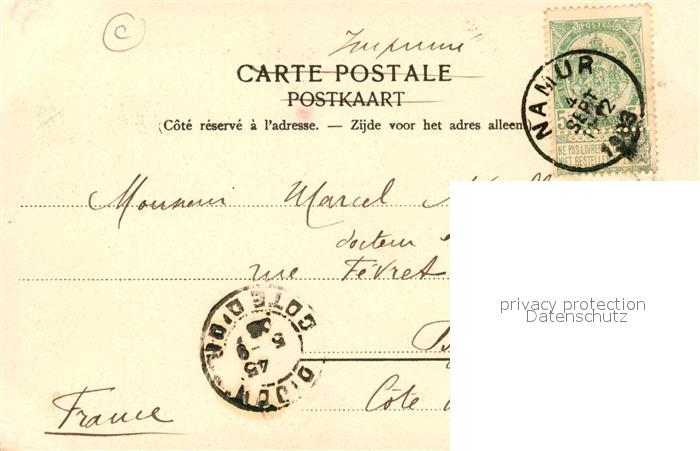 Imprimé
CARTE POSTALE
POSTKAART
(Côté réservé à l'adresse. — Zijde voor het adres alleen)
POSTES
NAMUR
SEPT
NE PAS LIVRER
NIET BESTELLEN
Monsieur Marcel
docteur
rue Févret
privacy protection
Datenschutz
DIJON
COTE D'OR
45
Côte
France